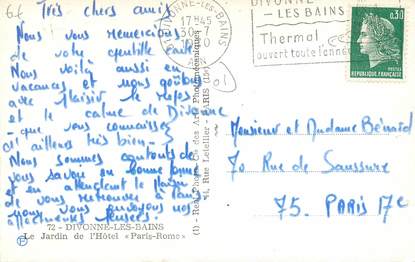 Très chers amis
Nous vous remercions
de votre gentille carte.
Nous voilà aussi en
vacances et nous goûtons
avec plaisir le repos
et le calme de Divonne
- que vous connaissez
d'ailleurs très bien -
Nous sommes contents de
vous savoir en bonne forme
et en attendant le plaisir
de vous retrouver à Paris
nous vous envoyons nos
affectueuses pensées.
72 - DIVONNE-LES-BAINS
Le Jardin de l'Hôtel «Paris-Rome»
DIVONNE-LES-BAINS
17H45
30
01
DIVONNE
-LES BAINS
Thermal
ouvert toute l'année
0,30
POSTES
REPUBLIQUE FRANÇAISE
Monsieur et Madame Bénard
70 Rue de Saussure
75. PARIS 17e